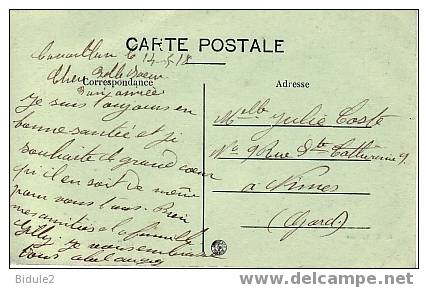 CARTE POSTALE
le 14-5-18
Correspondance
Chere Belle Soeur
Je suis toujours en
bonne santée et je
souhaite de grand coeur
qu'il en soit de même
pour vous tous. Bien
mes amitiés a la famille
Je vous embrasse
tous
Adresse
Melle Julia Coste
No 9 Rue Ste Catherine 9
a Nimes
(Gard)
Bidule2
delcampe.net